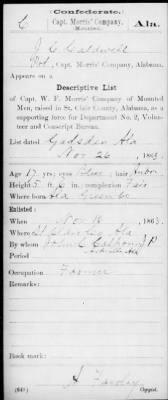 Confederate.
C Capt. Morris' Company, Mounted. Ala.
J C Caldwell
Pvt., Capt. Morris' Company, Alabama.
Appears on a
Descriptive List
of Capt. W. F. Morris' Company of Mounted
Men, raised in St. Clair County, Alabama, as a
supporting force for Department No. 2, Volun-
teer and Conscript Bureau.
List dated Gadsden Ala
Nov 26, 1863.
Age 17 years; eyes Blue; hair Aubn.
Height 5 ft. 6 in.; complexion Fair
Where born Ala
Enlisted:
When Nov 16, 1863.
Where St Clair Co, Ala
By whom John C Calhoun J P
Period
Occupation Farmer
Remarks:
Book mark:
(640) Copyist.